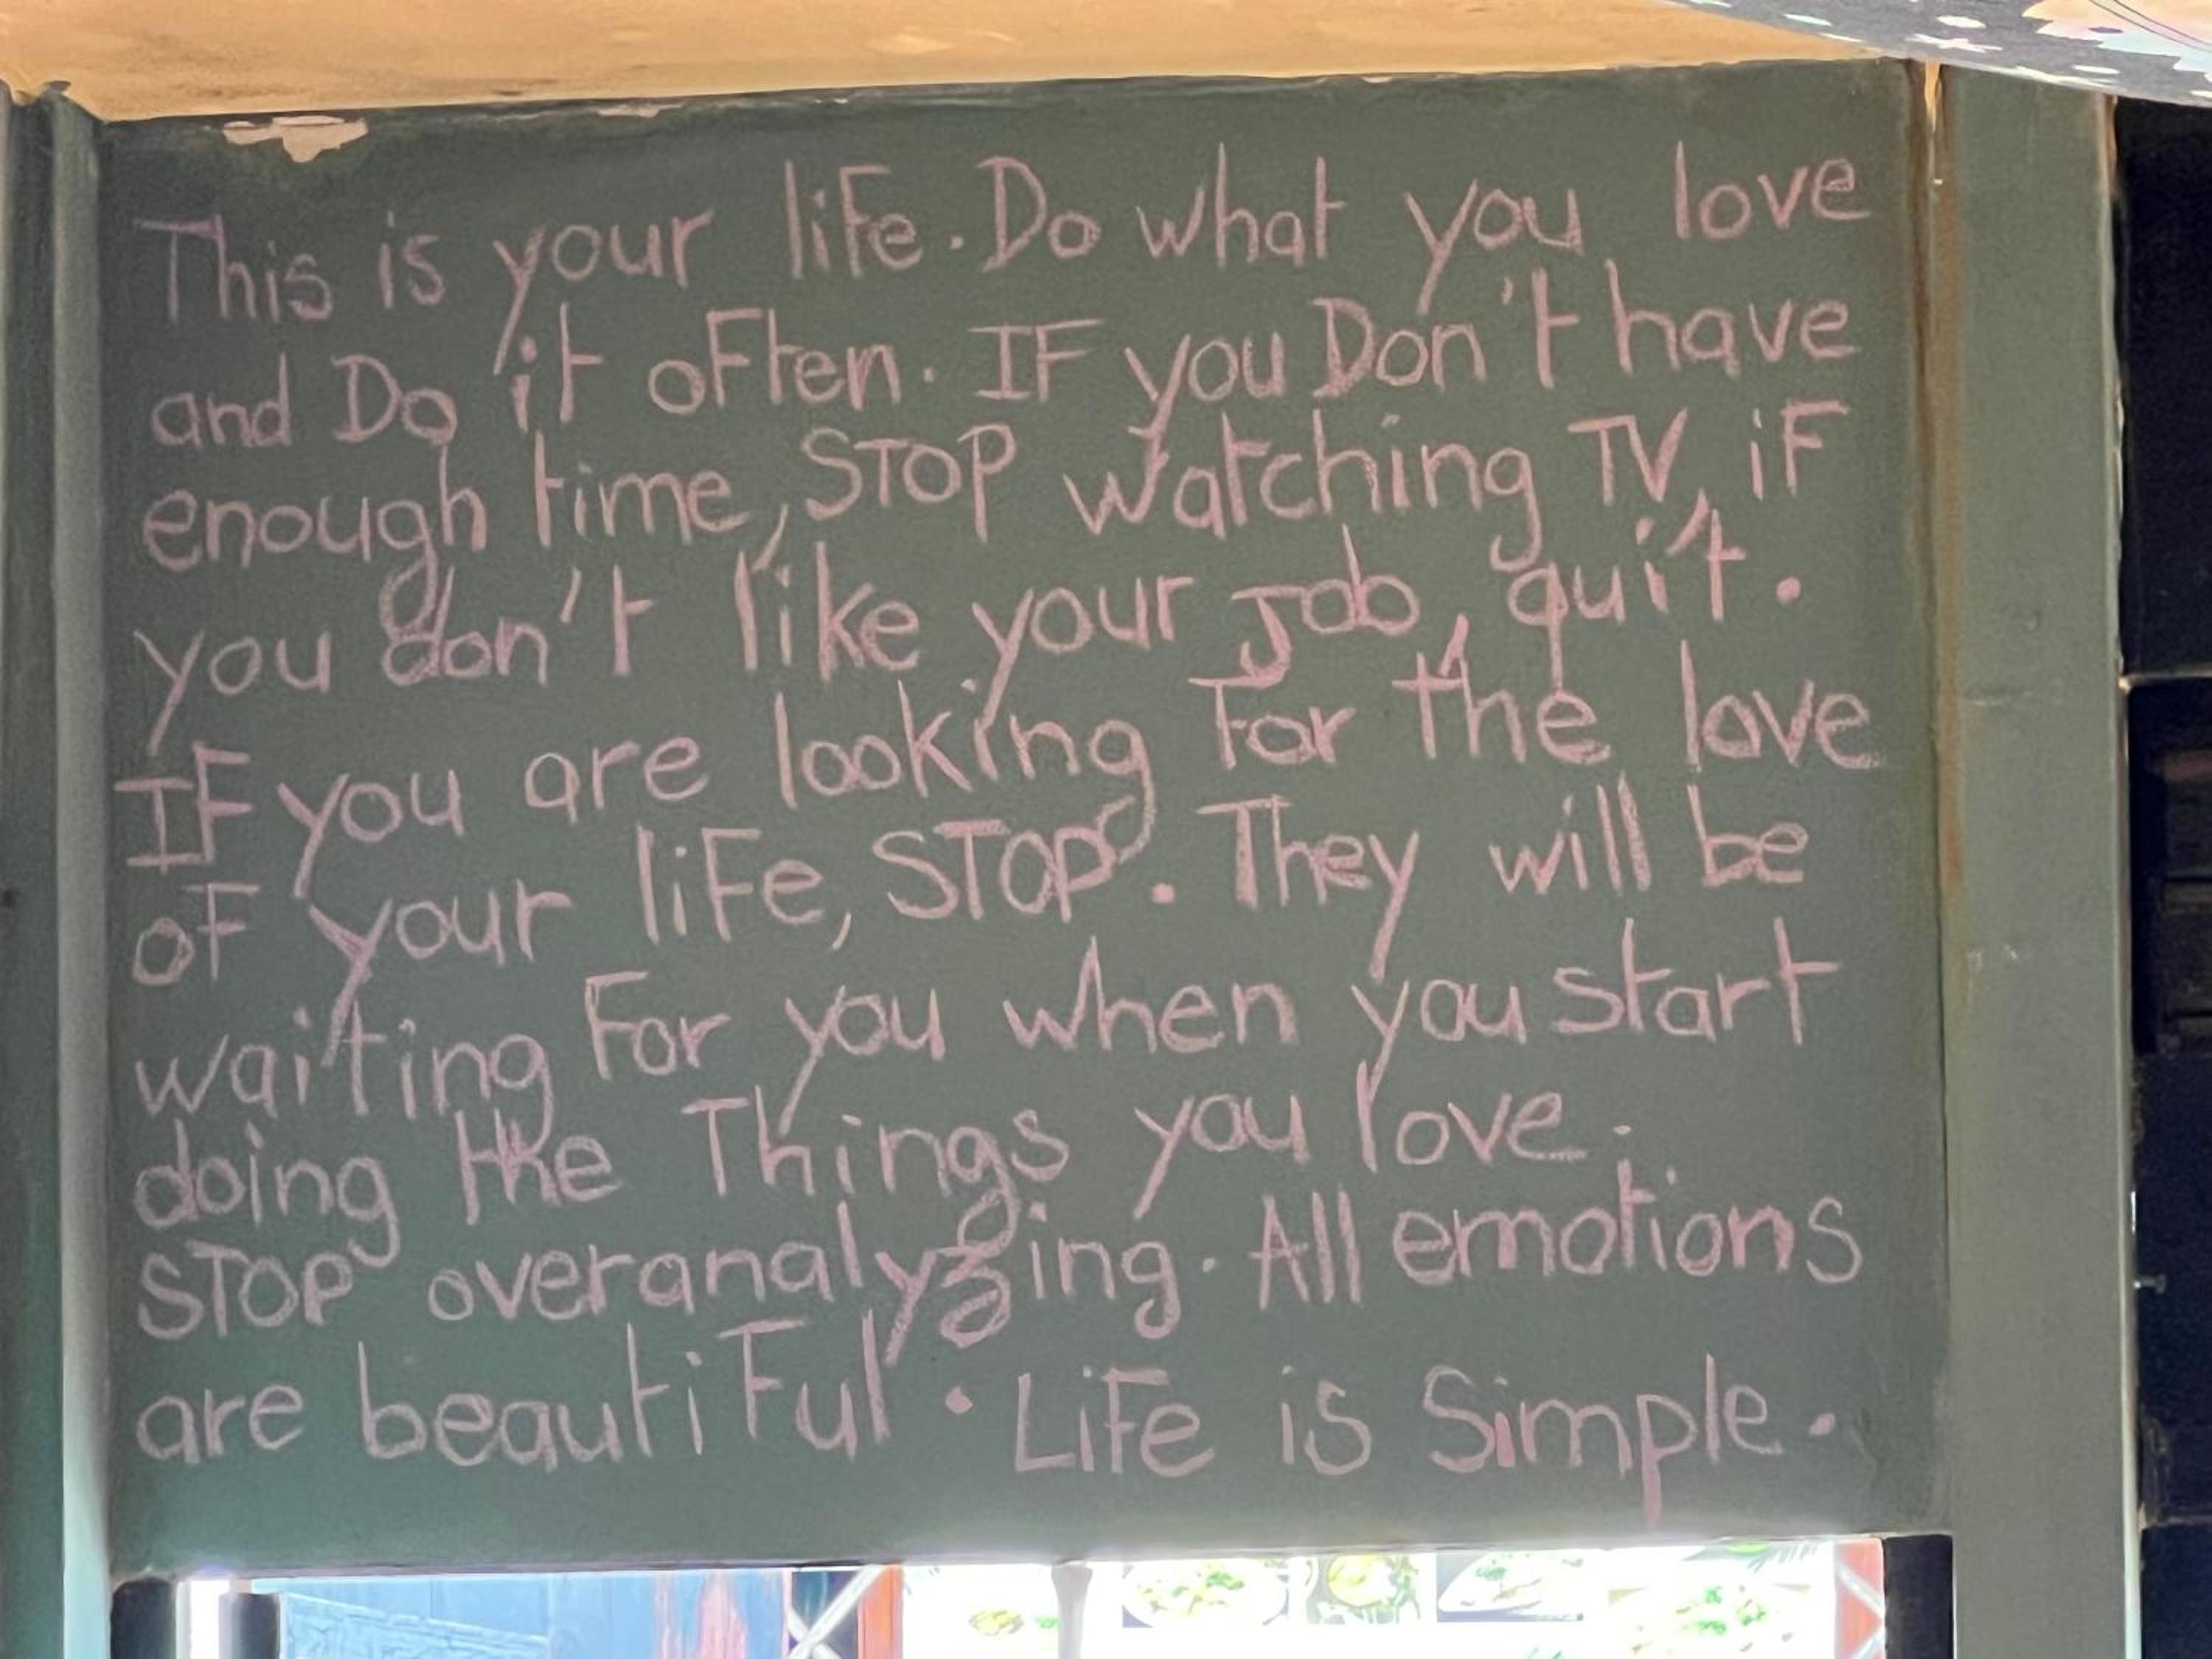 This is your life. Do what you love
and Do it often. IF you Don't have
enough time, STOP watching TV, iF
you don't like your Job, quit.
IF you are looking For the love
oF your liFe, STOP. They will be
waiting For you when you start
doing the Things you love.
STOP overanalyzing. All emotions
are beautiFul. LiFe is Simple.